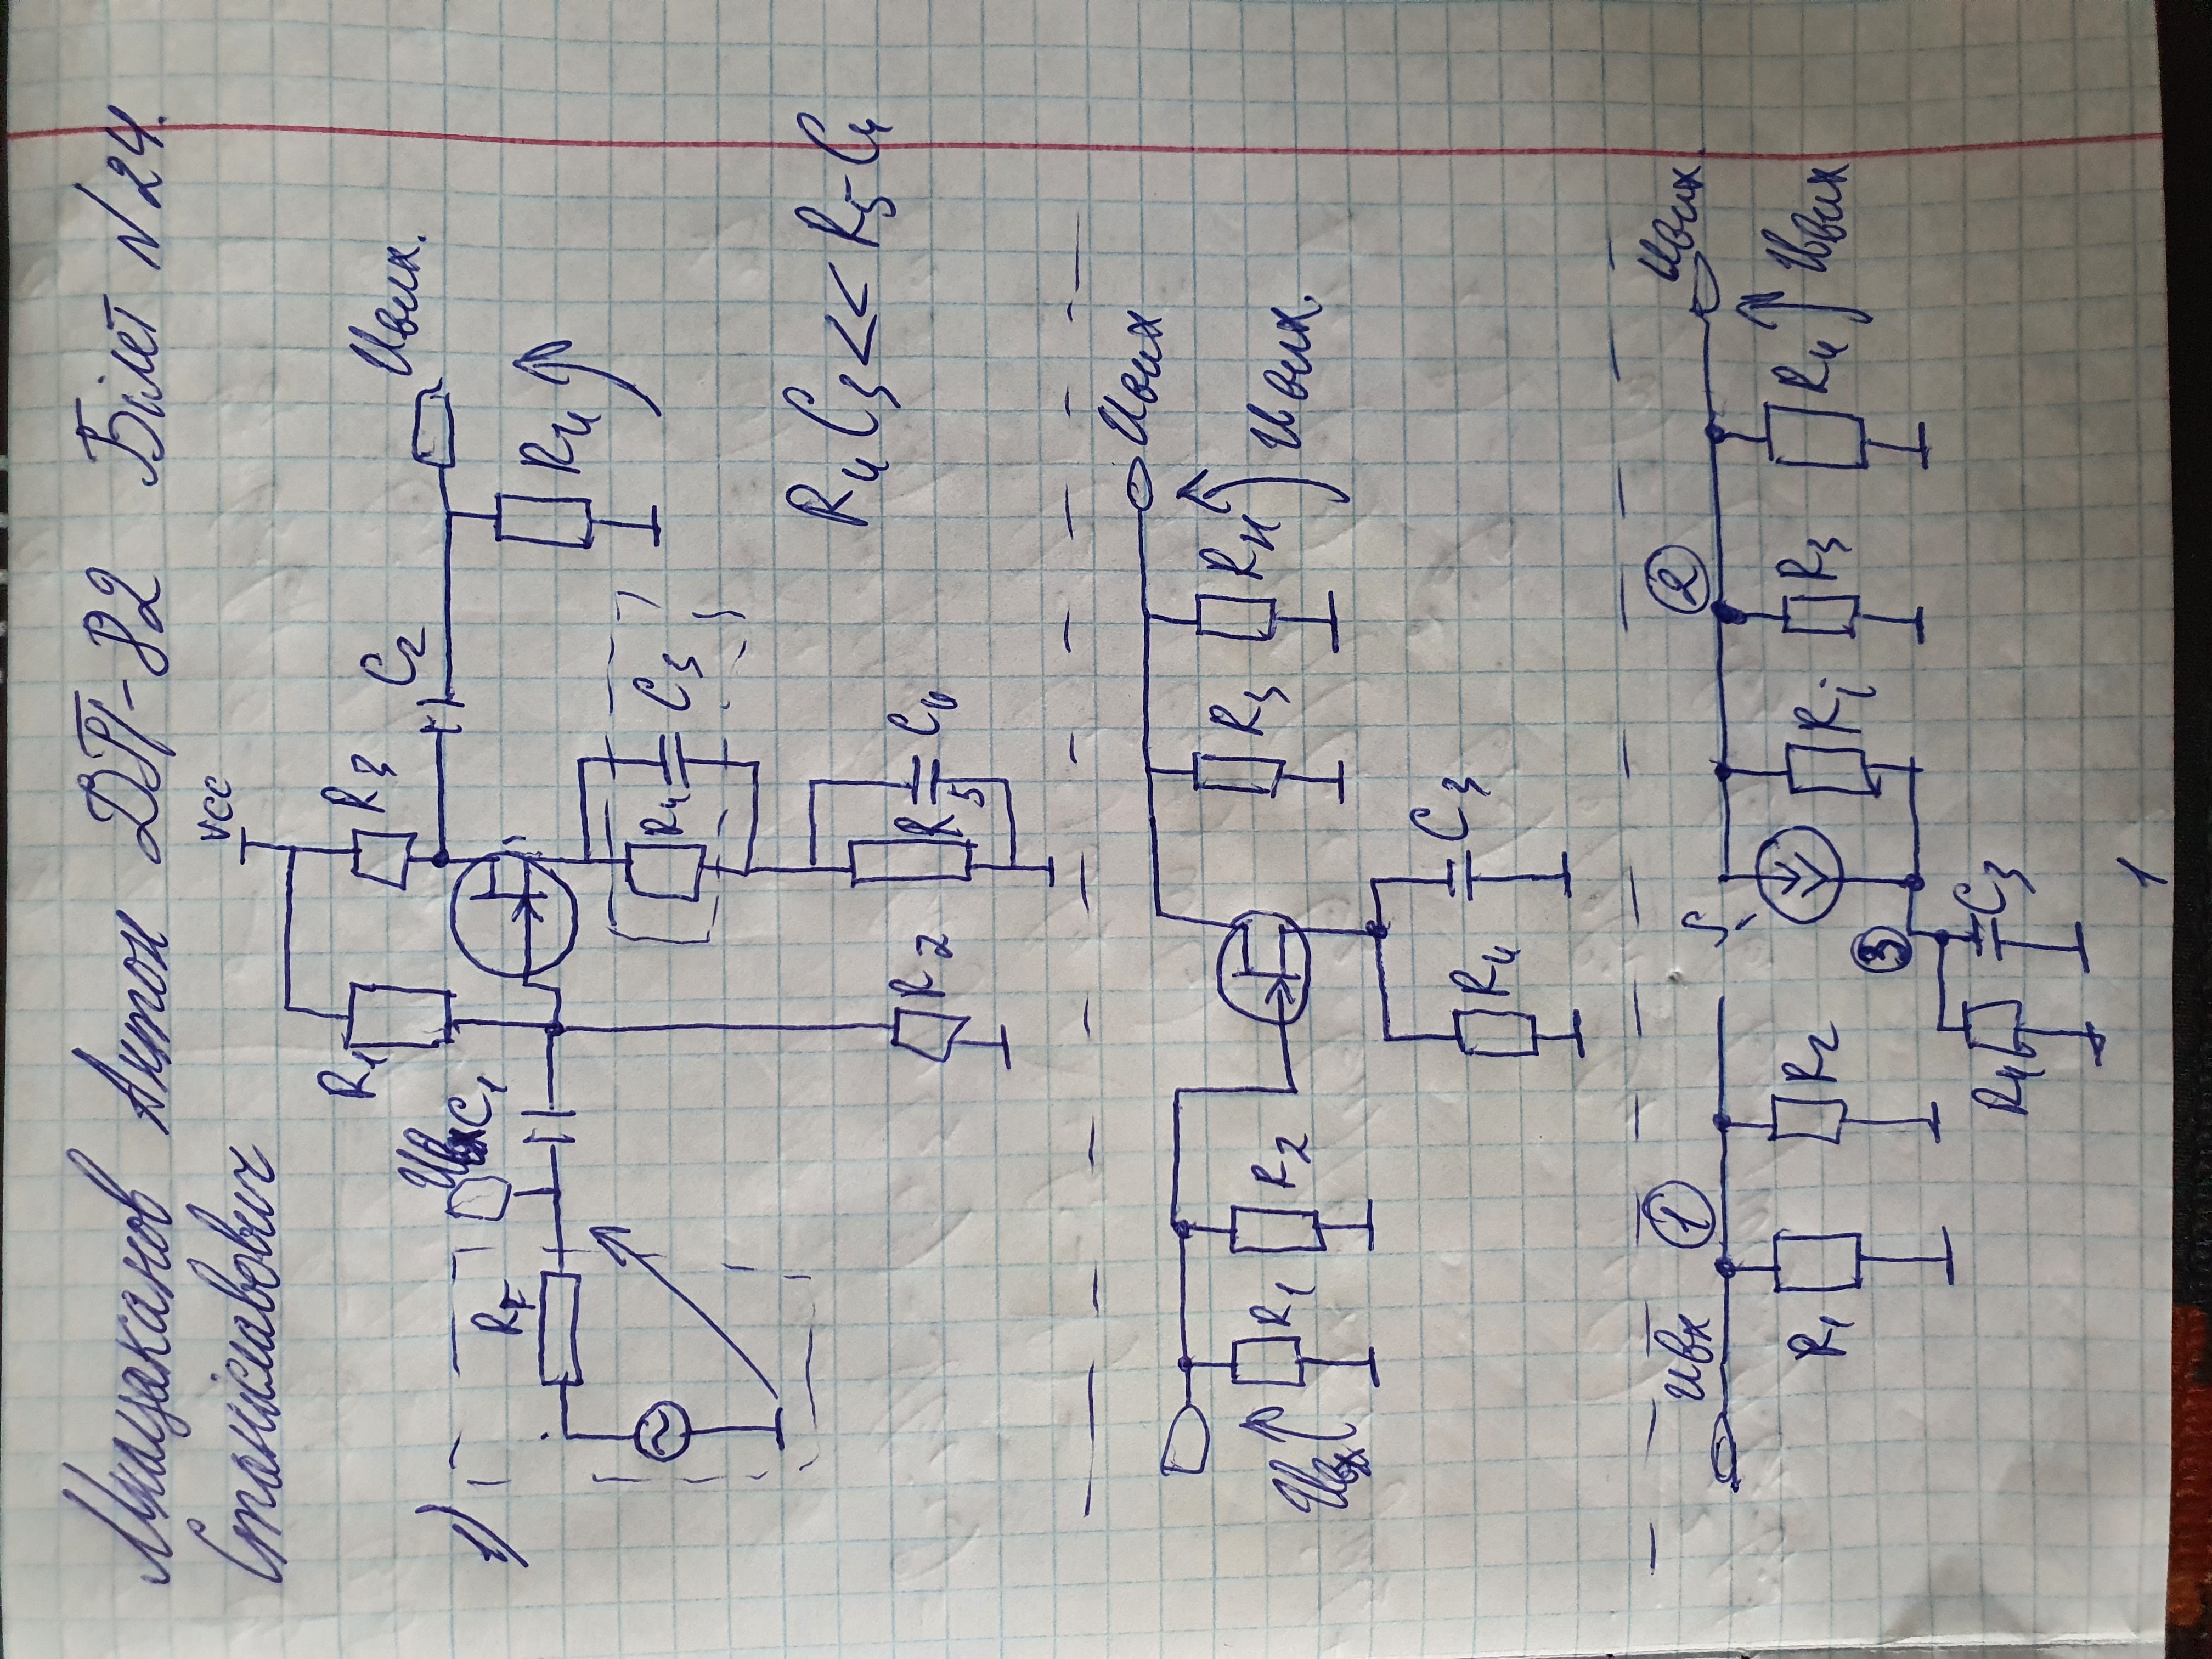 Мнацаканов Антон ДП-82 Білет №24.
Станіславович
VCC
R1
R3
C2
Uвих.
1)
Uвх
C1
RГ
Rн
R4
C3
R4C3 << R5C4
R2
R5
C4
Uвих
R1
R2
R3
Rн
Uвх
Uвих.
C3
R4
Uвх
1
S
2
Uвих.
R1
R2
Ri
R3
Rн
Uвих
3
R4
C3
1